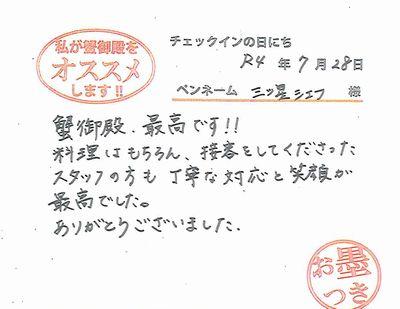 私が蟹御殿を
オススメ
します!!
チェックインの日にち
R4 年 7 月 28 日
ペンネーム 三ッ星シェフ 様
蟹御殿、最高です!!
料理はもちろん、接客をしてくださった
スタッフの方も丁寧な対応と笑顔が
最高でした。
ありがとうございました.
お墨
つき